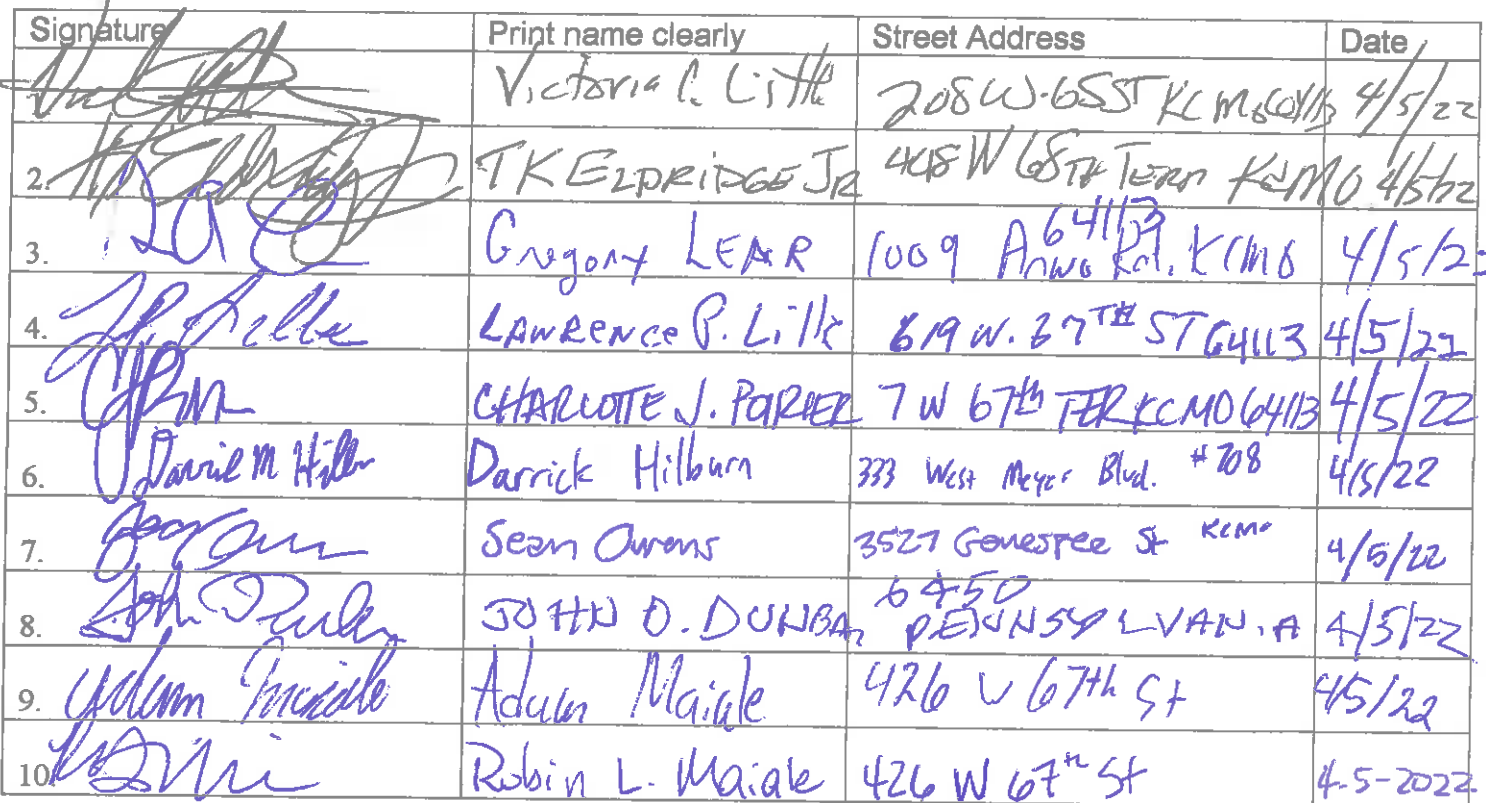 Signature Print name clearly Street Address Date
Victoria C. Little 208 W. 65 ST KC Mo 64113 4/5/22
2. TK ELDRIDGE JR 448 W 68TH TERR KCMO 4/5/22
64113
3. Gregory LEAR 1009 Rd. KCMO 4/5/2
4. LAWRENCE P. Little 619 W. 67TH ST 64113 4/5/22
5. CHARLOTTE J. PORTER 7 W 67th TER KCMO 64113 4/5/22
6. Darrick Hilburn 333 West Meyer Blvd. #708 4/5/22
7. Sean Owens 3527 Genessee St KCMO 4/5/22
6450
8. John O. Dunbar JOHN O. DUNBAR PENNSYLVANIA 4/5/22
9. Adam Maiale Adam Maiale 426 W 67th St 4/5/22
10. Robin L. Maiale 426 W 67th St 4-5-2022